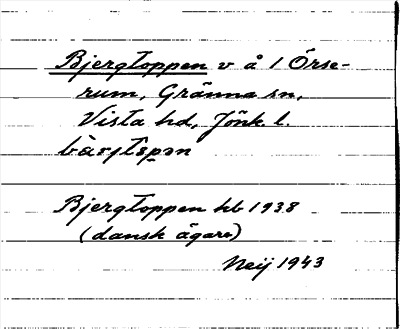 Bjergtoppen v å 1 Örse-
rum, Gränna sn,
Vista hd, Jönk l.
Bjergtoppen hb 1938
(dansk ägare)
Neij 1943